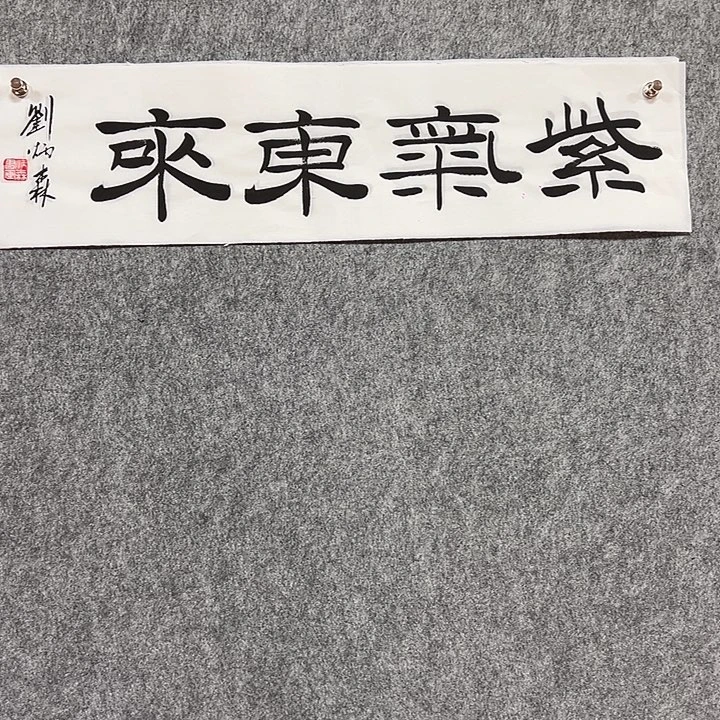 紫氣東來
劉炳森